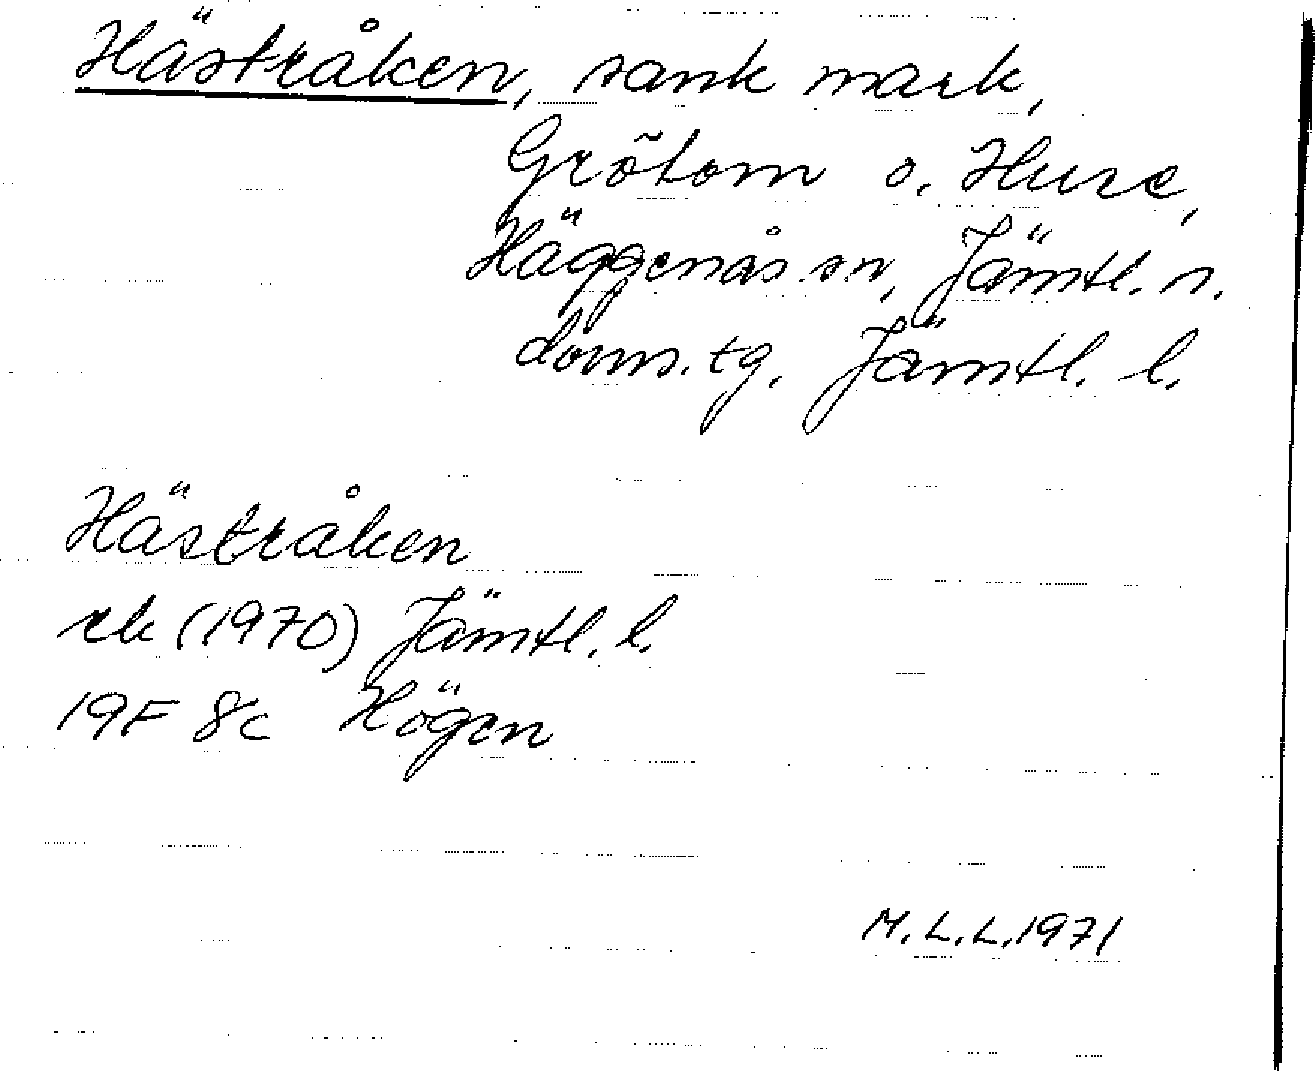 Hästråken, sank mark,
Grötom o. Huse,
Häggenås sn, Jämtl. n.
doms. tg. Jämtl. l.
Hästråken
ek (1970) Jämtl. l.
19F 8c Högen
M.L.L. 1971